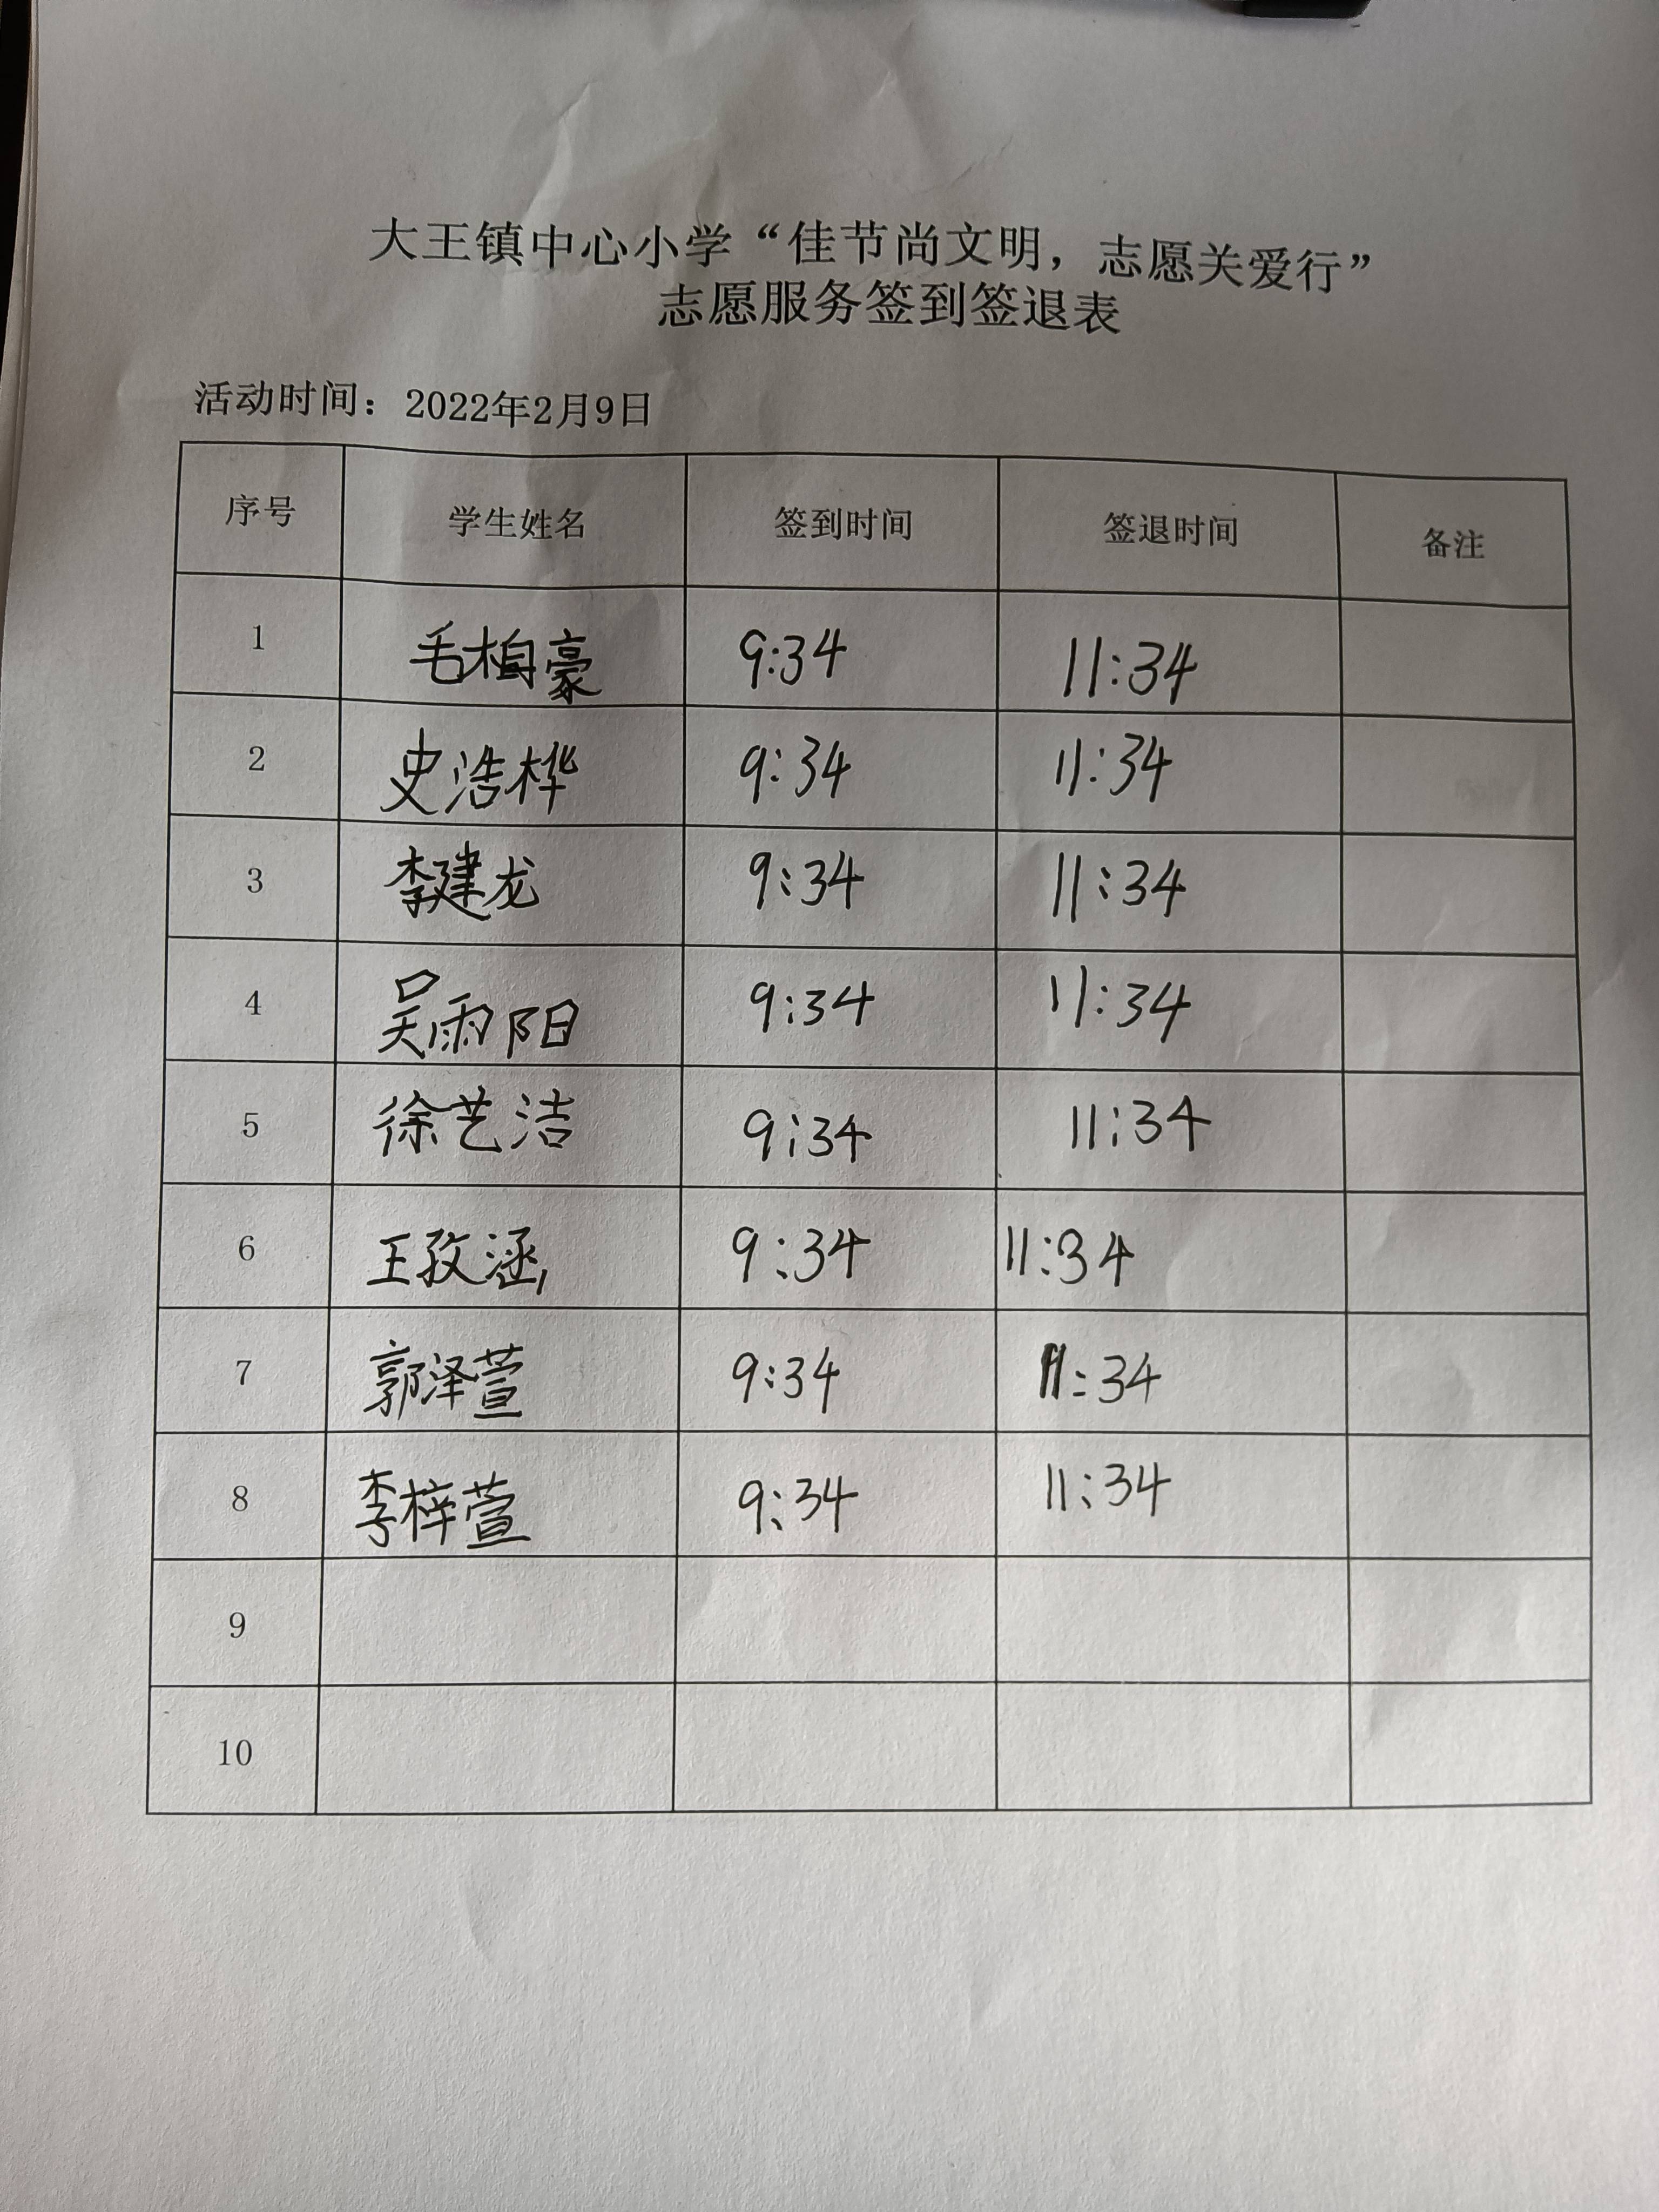 大王镇中心小学“佳节尚文明，志愿关爱行”
志愿服务签到签退表
活动时间：2022年2月9日
序号 学生姓名 签到时间 签退时间 备注
1 毛相豪 9:34 11:34
2 史浩桦 9:34 11:34
3 李建龙 9:34 11:34
4 吴雨阳 9:34 11:34
5 徐艺洁 9:34 11:34
6 王孜涵 9:34 11:34
7 郭泽萱 9:34 11:34
8 李梓萱 9:34 11:34
9
10